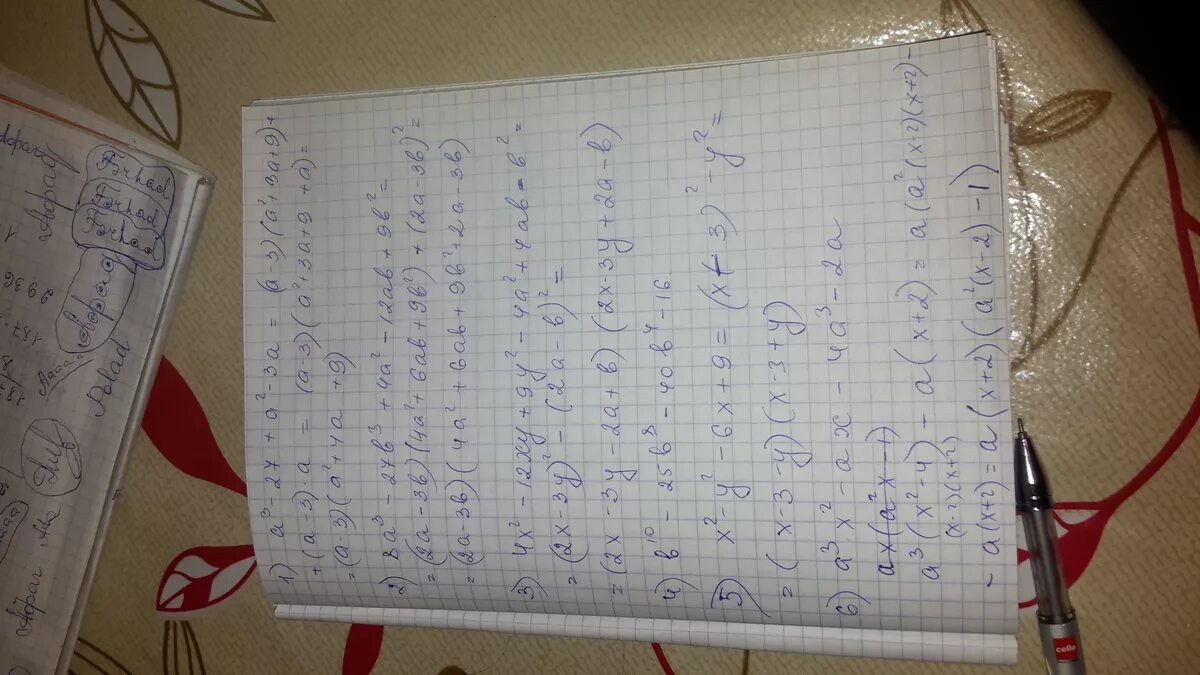 1) a³ - 27 + a² - 3a = (a-3)(a²+3a+9)+
+ (a-3)·a = (a-3)(a²+3a+9+a) =
= (a-3)(a²+4a+9)
2) 8a³ - 27b³ + 4a² - 12ab + 9b² =
= (2a-3b)(4a²+6ab+9b²) + (2a-3b)² =
= (2a-3b)(4a²+6ab+9b²+2a-3b)
3) 4x² - 12xy + 9y² - 4a² + 4ab - b² =
= (2x-3y)² - (2a-b)² =
= (2x-3y-2a+b)(2x-3y+2a-b)
4) b¹⁰ - 25b⁸ - 40b⁴ - 16
5) x² - y² - 6x + 9 = (x-3)² - y² =
= (x-3-y)(x-3+y)
6) a³x² - ax - 4a³ - 2a
ax(a²x-1)
a³(x²-4) - a(x+2) = a(a²(x+2)(x+2)-
(x-2)(x+2)
- a(x+2) = a(x+2)(a²(x-2)-1)
cello
Polad
Farhad
Farhad